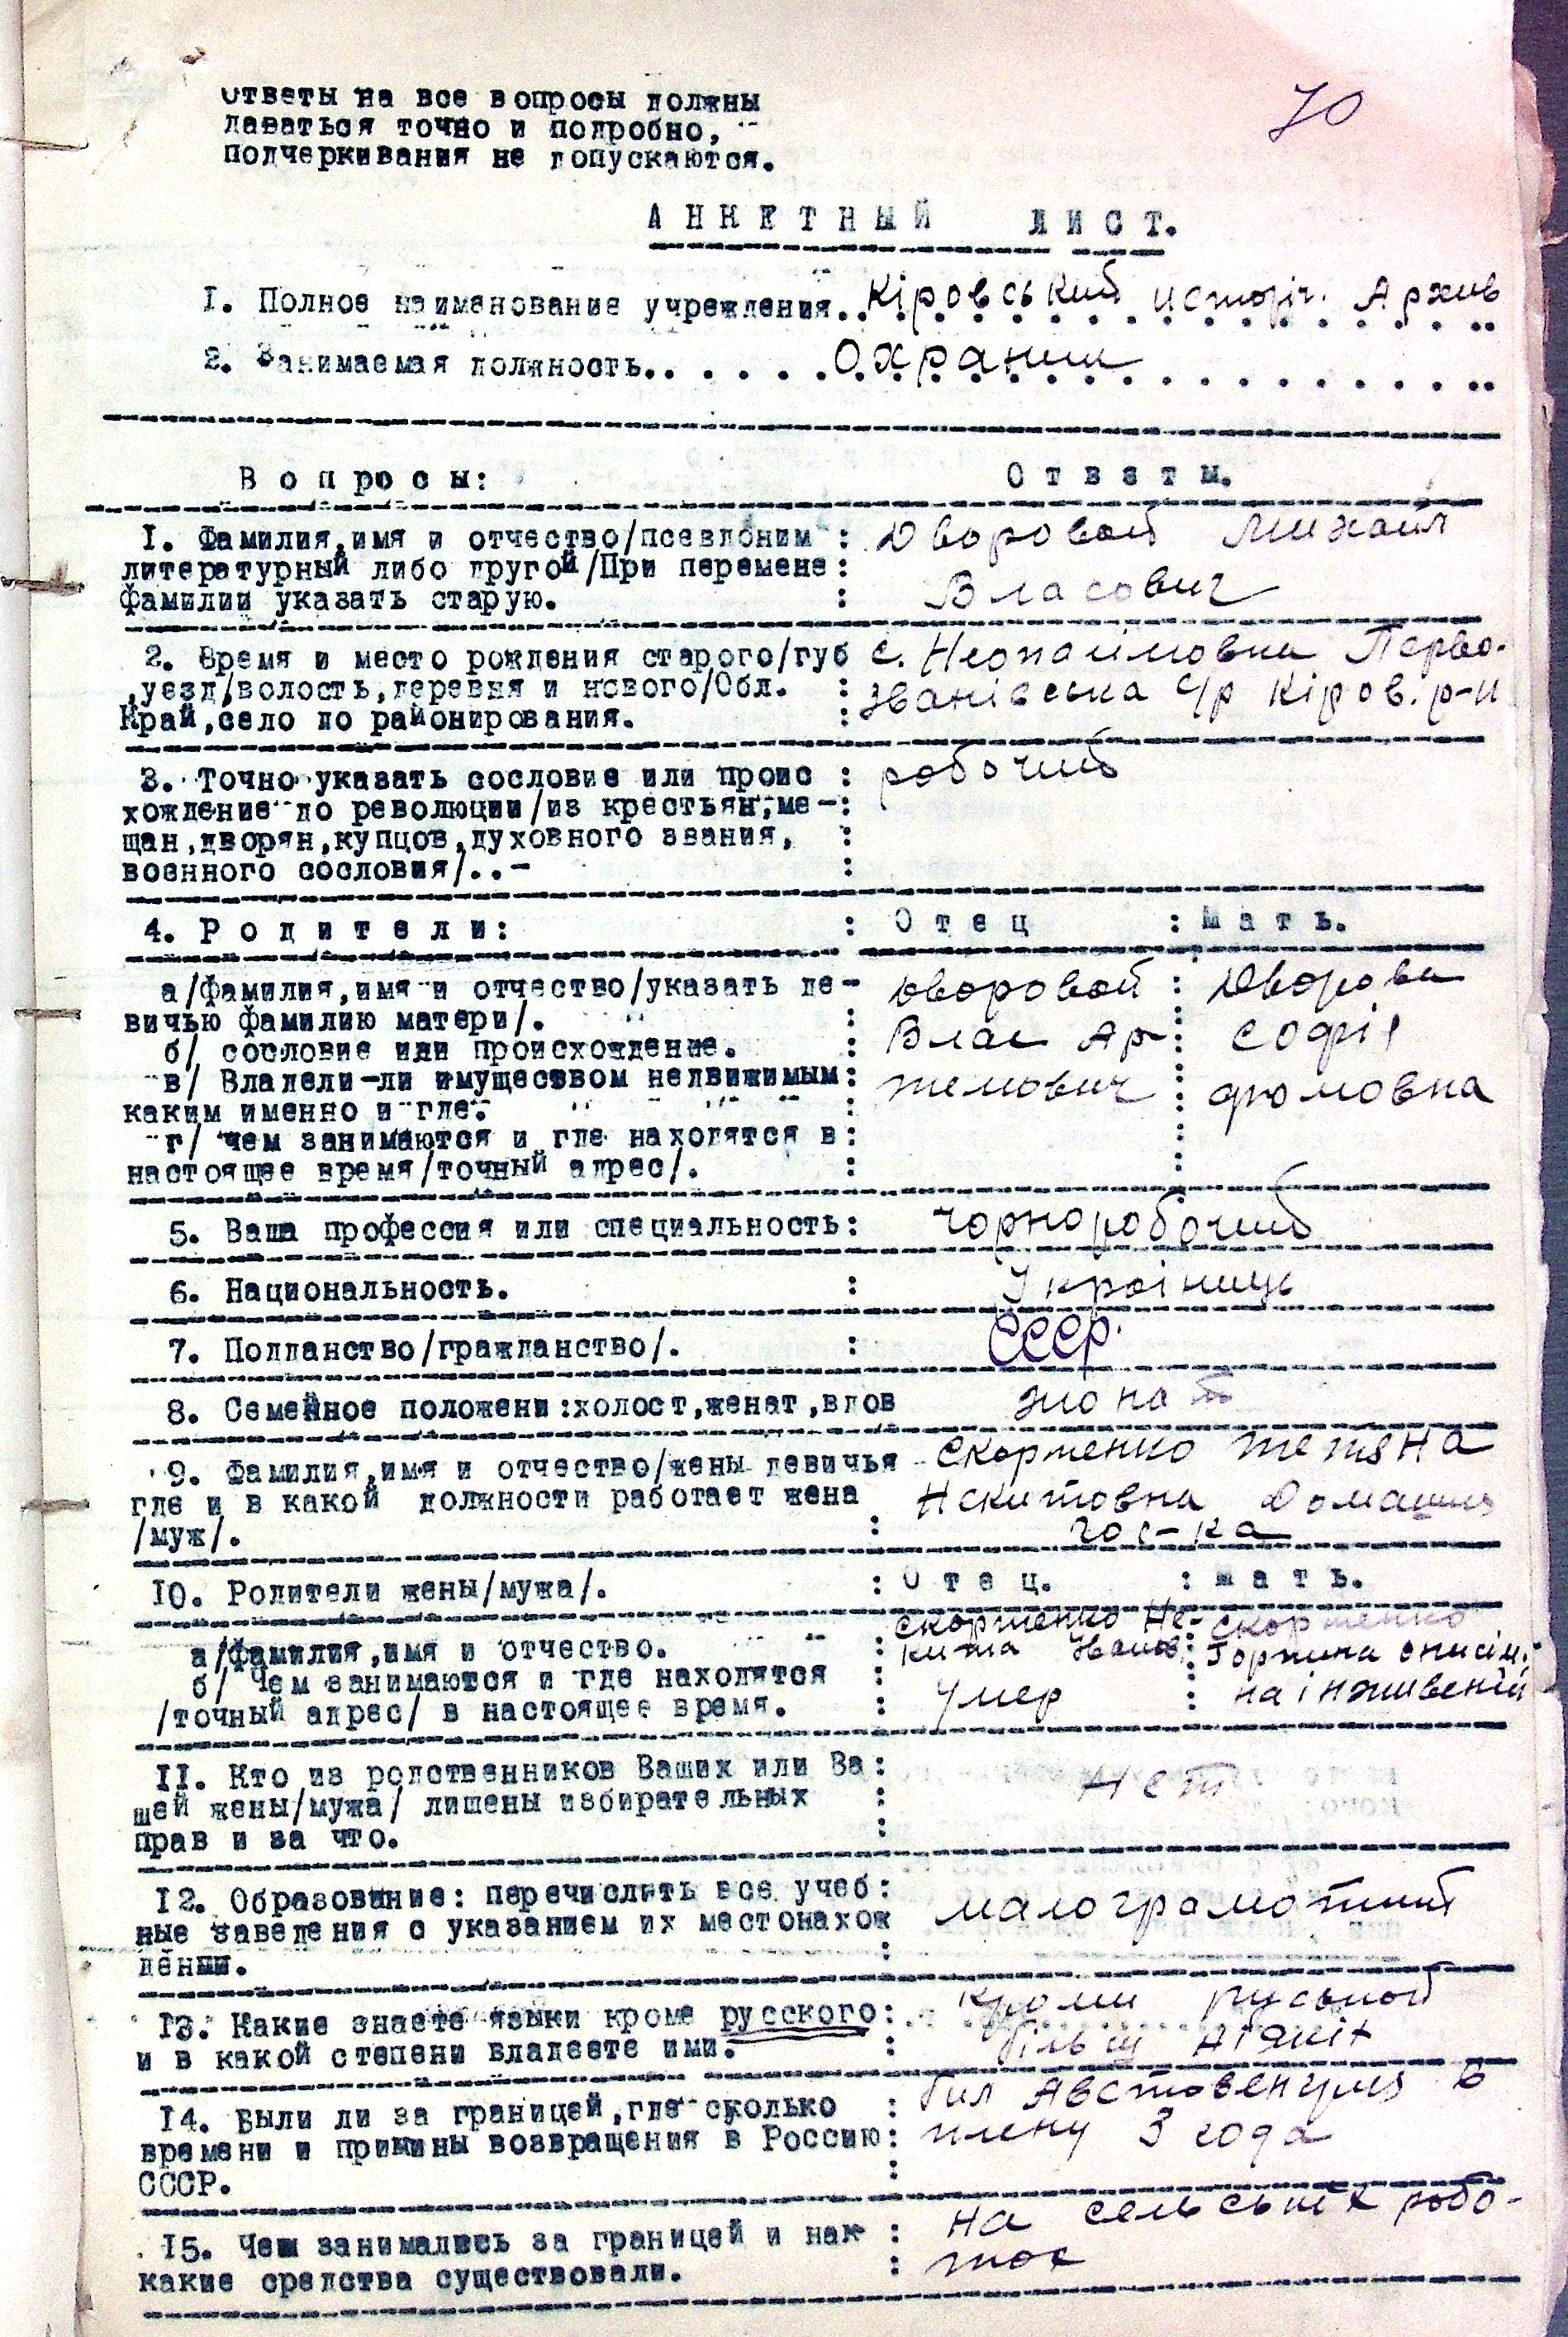 70
Ответы на все вопросы должны
даваться точно и подробно,
подчеркивания не допускаются.
АНКЕТНЫЙ ЛИСТ.
I. Полное наименование учреждения.. Кіровський исторіч. Архив
2. Занимаемая должность.. . . . . Охраниш
Вопросы: Ответы.
I. Фамилия,имя и отчество/псевдоним : Дворовой Михаил
литературный либо другой/При перемене:
фамилии указать старую. : Власович
2. Время и место рождения старого/губ с. Неопалімовка Перво-
,уезд/волость,деревня и нового/Обл. : званівська с/р Кіров. р-н
Край,село по районирования. :
3. Точно указать сословие или проис : робочий
хождение до революции/из крестьян,ме-:
щан,дворян,купцов,духовного звания, :
военного сословия/..- :
4. Родители: : Отец : Мать.
а/фамилия,имя и отчество/указать де- Дворовой : Дворова
вичью фамилию матери/. :
б/ сословие или происхождение. : Влас Ар : Софія
в/ Владели-ли имуществом недвижимым: темович : фомовна
каким именно и где. :
г/ чем занимаются и где находятся в: :
настоящее время/точный адрес/. : :
5. Ваша профессия или специальность: чорноробочий
6. Национальность. : Украіниць
7. Подданство/гражданство/. : СССР.
8. Семейное положени:холост,женат,вдов жонат
9. Фамилия,имя и отчество/жены девичья Скорченко Тетяна
где и в какой должности работает жена Некитовна Домашня
/муж/. : гос-ка
10. Родители жены/мужа/. : Отец. : Мать.
Скорченко Не- Скорченко
а/фамилия,имя и отчество. : кита Іванов. : Горпина онисім.
б/ Чем занимаются и где находятся :
/точный адрес/ в настоящее время. : умер : на іждивеній
II. Кто из родственников Ваших или Ва :
шей жены/мужа/ лишены избирательных : Нет
прав и за что. :
12. Образование: перечислить все учеб:
ные заведения с указанием их местонахож малограмотний
дения. :
13. Какие знаете языки кроме русского: кроми руськой
и в какой степени владеете ими. : більш ніяких
14. Были ли за границей,где сколько : бил Австовенгрия в
времени и причины возвращения в Россию: плену 3 года
СССР. :
15. Чем занимались за границей и нак : На сельських робо-
какие средства существовали. : тос